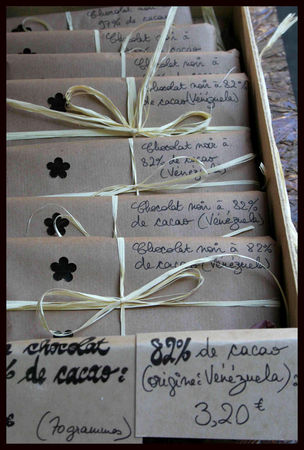 Chocolat noir à
97% de cacao
Chocolat noir à
Chocolat noir à 82%
de cacao (Vénézuela)
Chocolat noir à
82% de cacao
(Vénézuela)
Chocolat noir à 82% de
cacao (Vénézuela)
Chocolat noir à 82%
de cacao (Vénézuela)
chocolat
% de cacao :
€
(70 grammes)
82% de cacao
(origine : Vénézuela) :
3,20 €